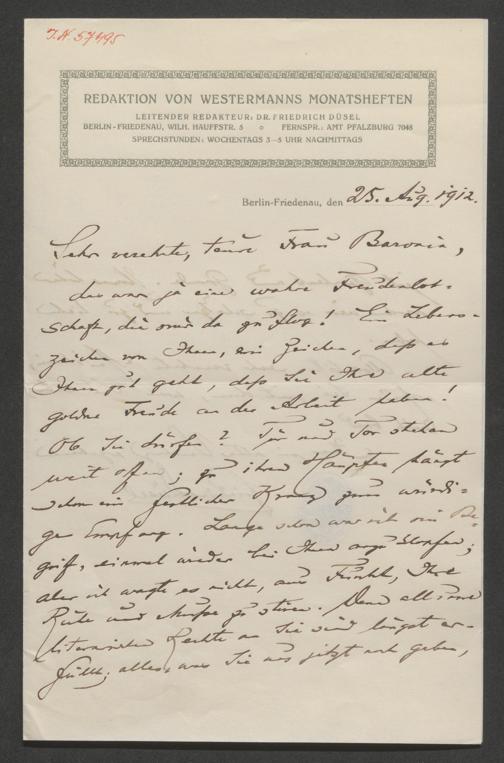 I.N. 57495
REDAKTION VON WESTERMANNS MONATSHEFTEN
LEITENDER REDAKTEUR: DR. FRIEDRICH DÜSEL
BERLIN-FRIEDENAU, WILH. HAUFFSTR. 5 o FERNSPR.: AMT PFALZBURG 7048
SPRECHSTUNDEN: WOCHENTAGS 3–5 UHR NACHMITTAGS
Berlin-Friedenau, den 25. Aug. 1912.
Sehr verehrte, teure Frau Baronin,
das war ja eine wahre Freudenbot-
schaft, die mir da zuflog! Ein Lebens-
zeichen von Ihnen, ein Zeichen, daß es
Ihnen gut geht, daß Sie Ihre alte
goldne Freude an der Arbeit haben!
Ob Sie dürfen? Tür und Tor stehen
weit offen; zu ihren Häupten hängt
schon ein festlicher Kranz zum würdi-
gen Empfang. Lange schon war ich im Be-
griff, einmal wieder bei Ihnen anzuklopfen;
aber ich wagte es nicht, aus Furcht, Ihre
Ruhe und Muße zu stören. Denn all unsre
literarischen Rechte an Sie sind längst er-
füllt; alles, was Sie uns jetzt noch geben,